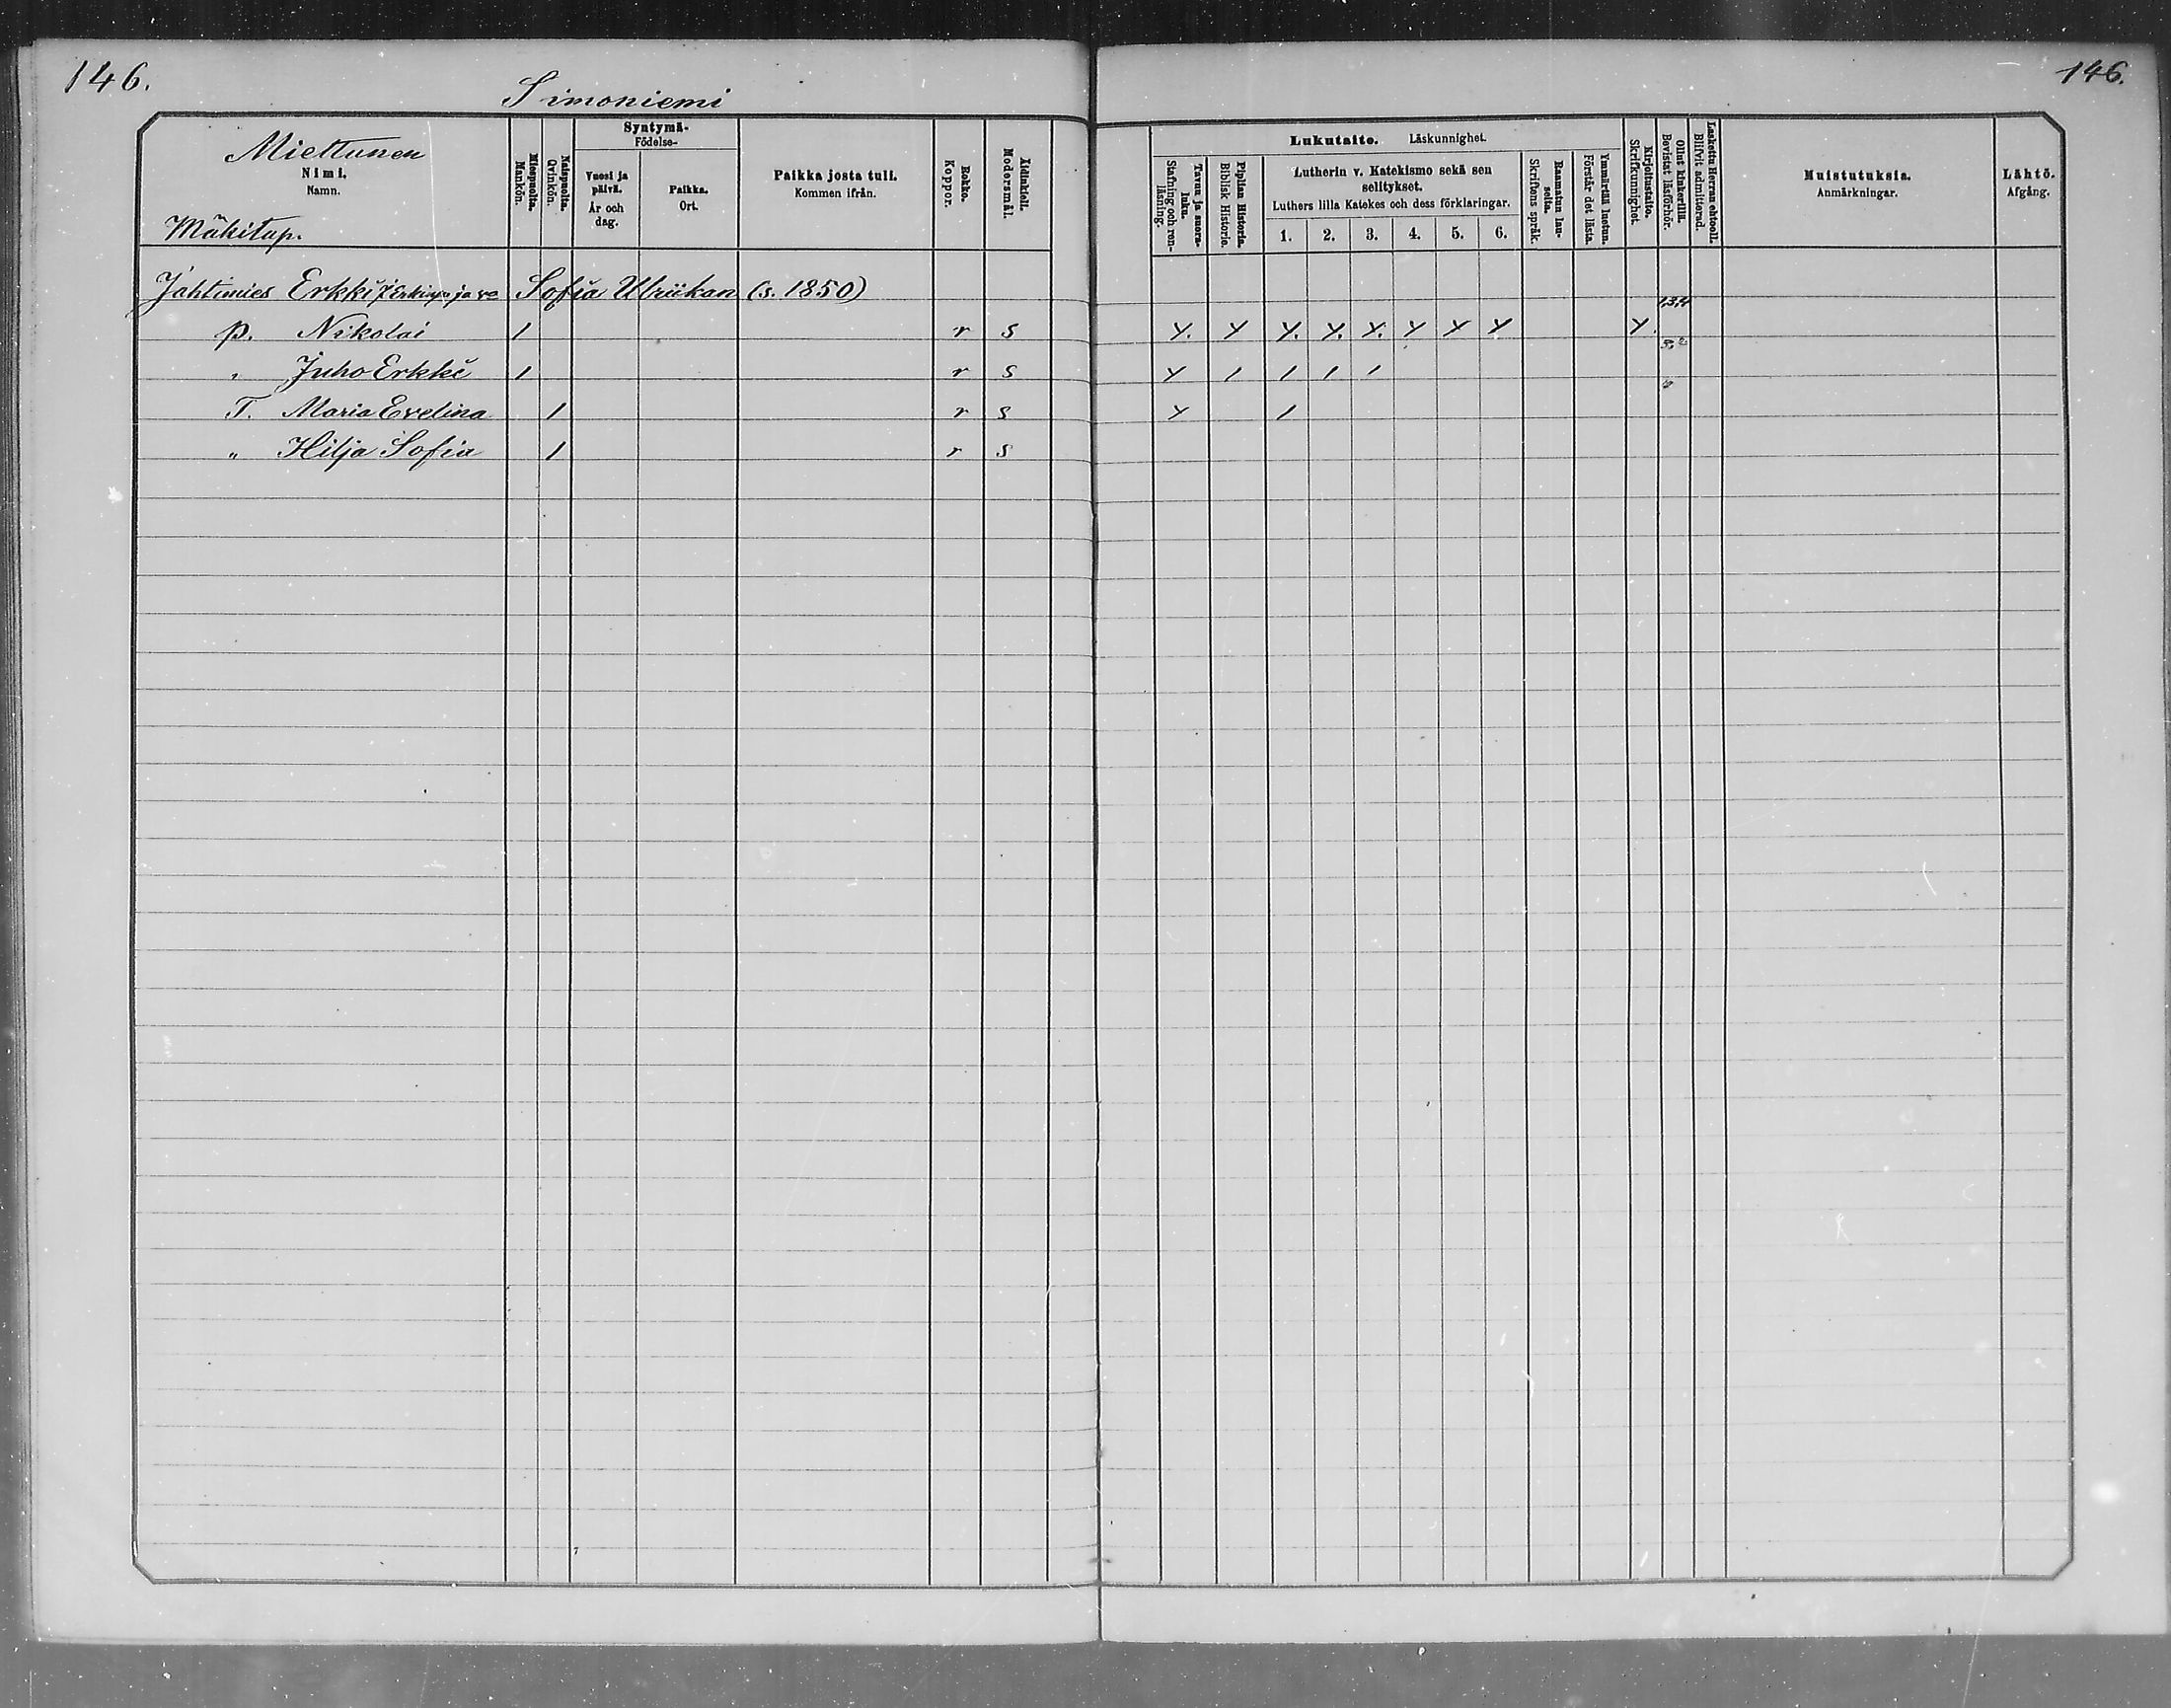 146.
Simoniemi
146.
Miettunen
Nimi.
Namn.
Mäkitup.
Miespuolta.
Mankön.
Naispuolta.
Qvinkön.
Syntymä-
Födelse-
Vuosi ja
päivä.
År och
dag.
Paikka.
Ort.
Paikka josta tuli.
Kommen ifrån.
Rokko.
Koppor.
Äidinkieli.
Modersmål.
Lukutaito. Läskunnighet.
Tavuu ja suora-
luku.
Stafning och ren-
läsning.
Piplian Historia.
Biblisk Historie.
Lutherin v. Katekismo sekä sen
selitykset.
Luthers lilla Katekes och dess förklaringar.
1. 2. 3. 4. 5. 6.
Raamatun lau-
seita.
Skriftens språk.
Ymmärtää luetun.
Förstår det lästa.
Kirjoitustaito.
Skrifkunnighet.
Ollut kinkerillä.
Bevistat läsförhör.
Laskettu Herran ehtooll.
Blifvit admitterad.
Muistutuksia.
Anmärkningar.
Lähtö.
Afgång.
Jahtimies Erkki ja Sofia Ulriikan (s. 1850)
p. Nikolai 1 r s Y. Y Y. Y. Y. Y Y Y Y.
" Juho Erkki 1 r s Y 1 1 1 1
T. Maria Evelina 1 r s Y 1
" Hilja Sofia 1 r s